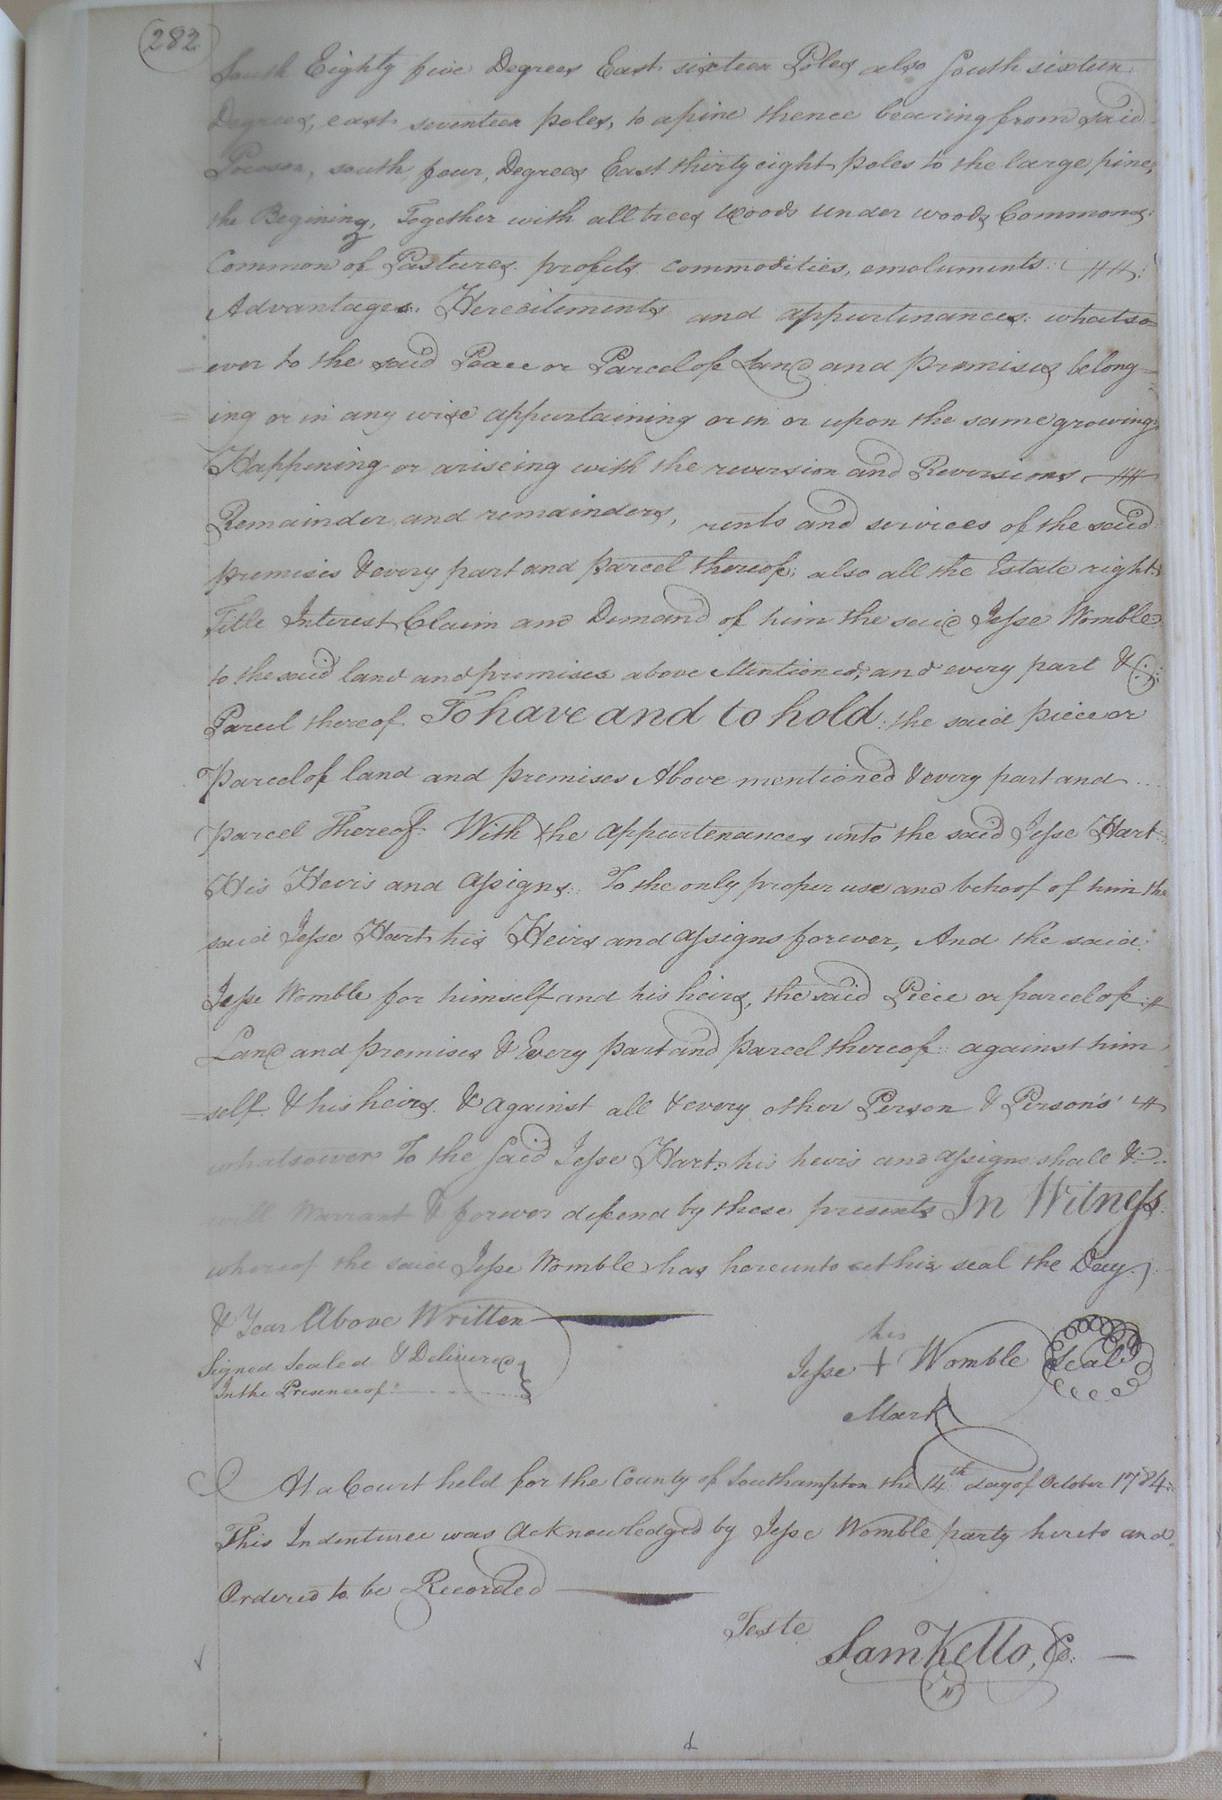 282
South Eighty five Degrees East sixteen Poles also South sixteen
Degrees, east seventeen poles, to a pine thence bearing from said
Poccson, south, four, Degrees East thirty eight poles to the large pine,
the Begining, Together with all trees woods under woods Commons
Common of Pastures profits commodities, emoluments
Advantages. Hereditements and appurtinances: whatso=
ever to the said Peace or Parcel of Land and premises belong=
=ing or in any wise appurtaining or in or upon the same growing
Happening or ariseing with the reversion and Reversions
Remainder and remainders, rents and services of the said
premises & every part and parcel thereof; also all the Estate right
Title Interest Claim and Demand of him the said Jesse Womble
to the said land and premises above Mentioned, and every part &
Parcel thereof To have and to hold: the said piece or
Parcel of land and premises Above mentioned & every part and
parcel Thereof: With the appurtenances unto the said Jesse Hart
His Heirs and assigns: To the only proper use and behoof of him the
said Jesse Hart his Heirs and assigns forever, And the said:
Jesse Womble for himself and his heirs, the said Piece or parcel of
Land and premises & Every part and parcel thereof: against him
=self & his heirs & against all & every other Person & Person's
whatsoever To the said Jesse Hart his heirs and assigns shall &
will Warrant & forever defend by these presents In Witness
whereof the said Jesse Womble has hereunto set his seal the Day
& Year Above Written
Signed Sealed & Delivered
In the Presence of
his
Jesse + Womble Seal
Mark
At a Court held for the County of Southampton the 14th day of October 1784:
This Indenture was Acknowledged by Jesse Womble party hereto and
Ordered to be Recorded
Teste
Sam Kello, C.